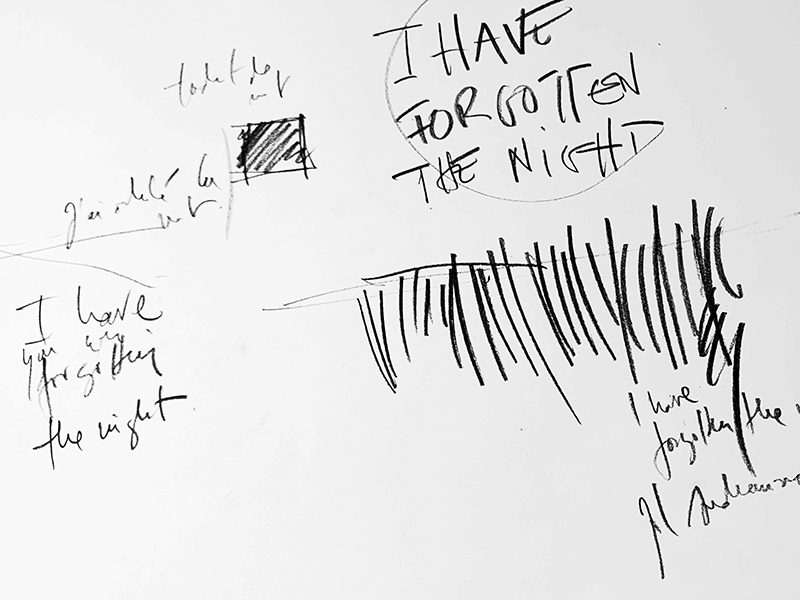 I HAVE
FORGOTTEN
THE NIGHT
J'ai oublié la
nuit
I have
you are
forgotten
the night
I have
forgotten the